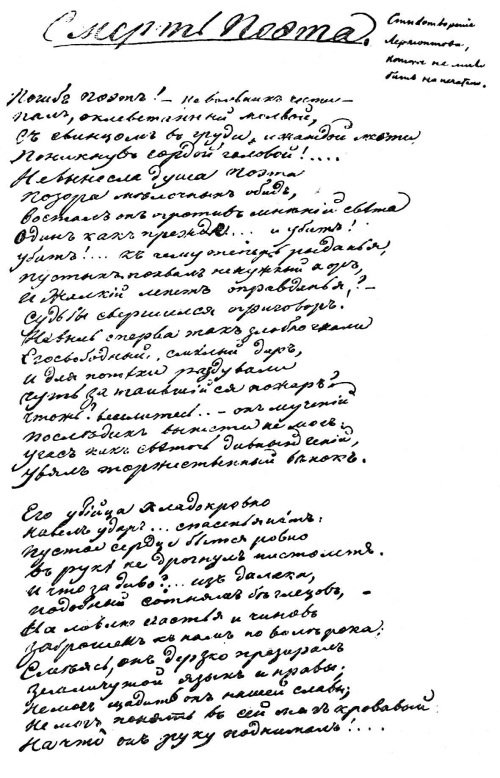 Смерть Поэта.
Стихотвореніе
Лермонтова,
которое не мог
быть напечатано.
Погибъ поэтъ! – невольникъ чести –
Палъ, оклеветанный молвой,
Съ свинцомъ въ груди, и жаждой мести
Поникнувъ гордой головой!....
Не вынесла душа поэта
Позора мелочныхъ обидъ,
Возсталъ онъ противъ мнѣній свѣта
Одинъ какъ прежде... и убитъ!
Убитъ!... къ чему теперь рыданья,
Пустыхъ похвалъ ненужный хоръ,
И жалкій лепетъ оправданья,? –
Судьбы свершился приговоръ.
Не вы ль сперва такъ злобно гнали
Его свободный, смѣлый даръ,
И для потѣхи раздували
Чуть затаившійся пожаръ?
Чтожъ? веселитесь... – онъ мученій
Послѣднихъ вынести не могъ:
Угасъ какъ свѣточъ дивный геній,
Увялъ торжественный вѣнокъ.
Его убійца хладокровно
Навелъ ударъ... спасенья нѣтъ:
Пустое сердце бьется ровно
Въ рукѣ не дрогнулъ пистолетъ.
И что за диво?... изъ далека,
Подобный сотнямъ бѣглецовъ, –
На ловлю счастья и чиновъ
Заброшенъ къ намъ по волѣ рока;
Смѣясь, онъ дерзко презиралъ
Земли чужой языкъ и нравы;
Не могъ щадить онъ нашей славы;
Не могъ понять въ сей мигъ кровавый
На что онъ руку поднималъ!....